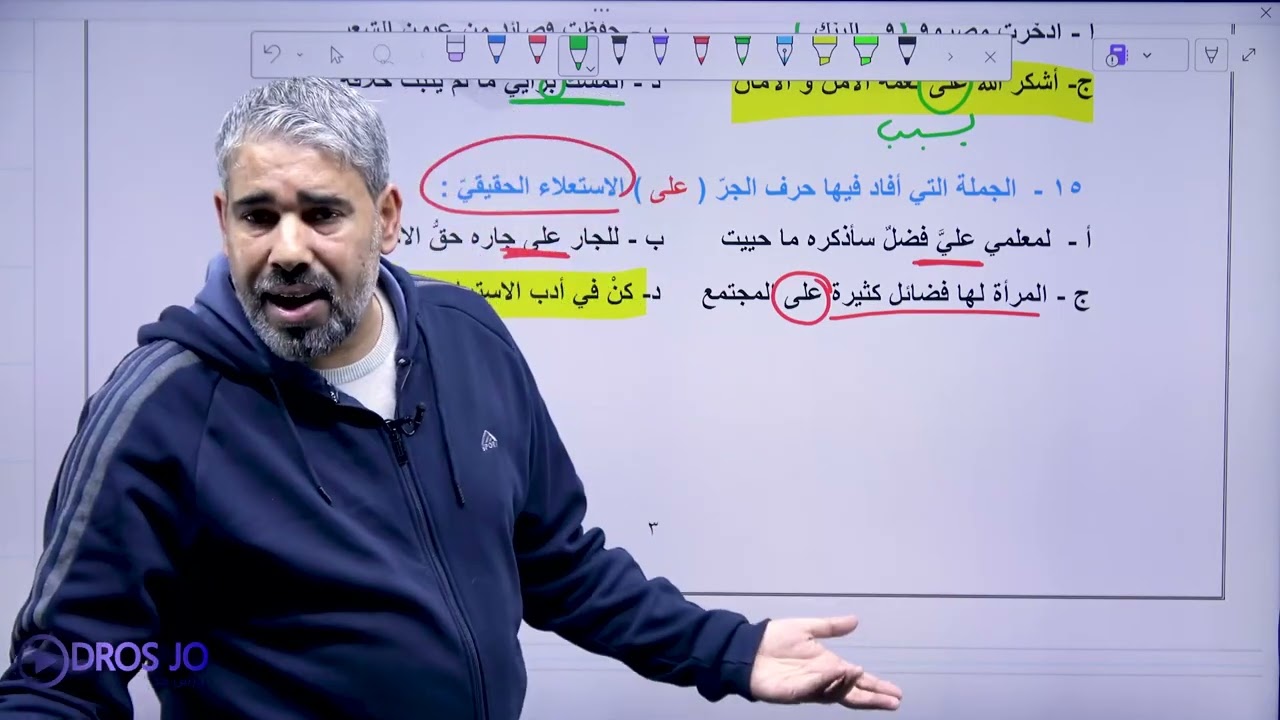 أ - ادّخرت
ج- أشكر الله على نعمة الأمن و الأمان
د -
يسبب
١٥ - الجملة التي أفاد فيها حرف الجرّ ( على ) الاستعلاء الحقيقيّ :
أ - لمعلمي عليَّ فضلٌ سأذكره ما حييت
ب - للجار على جاره حقُّ
ج - المرأة لها فضائل كثيرة على المجتمع
د- كنْ في أدب
٣
DROS JO